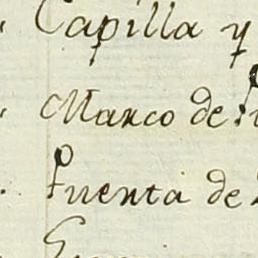 Capilla y
Marco de
Puenta de